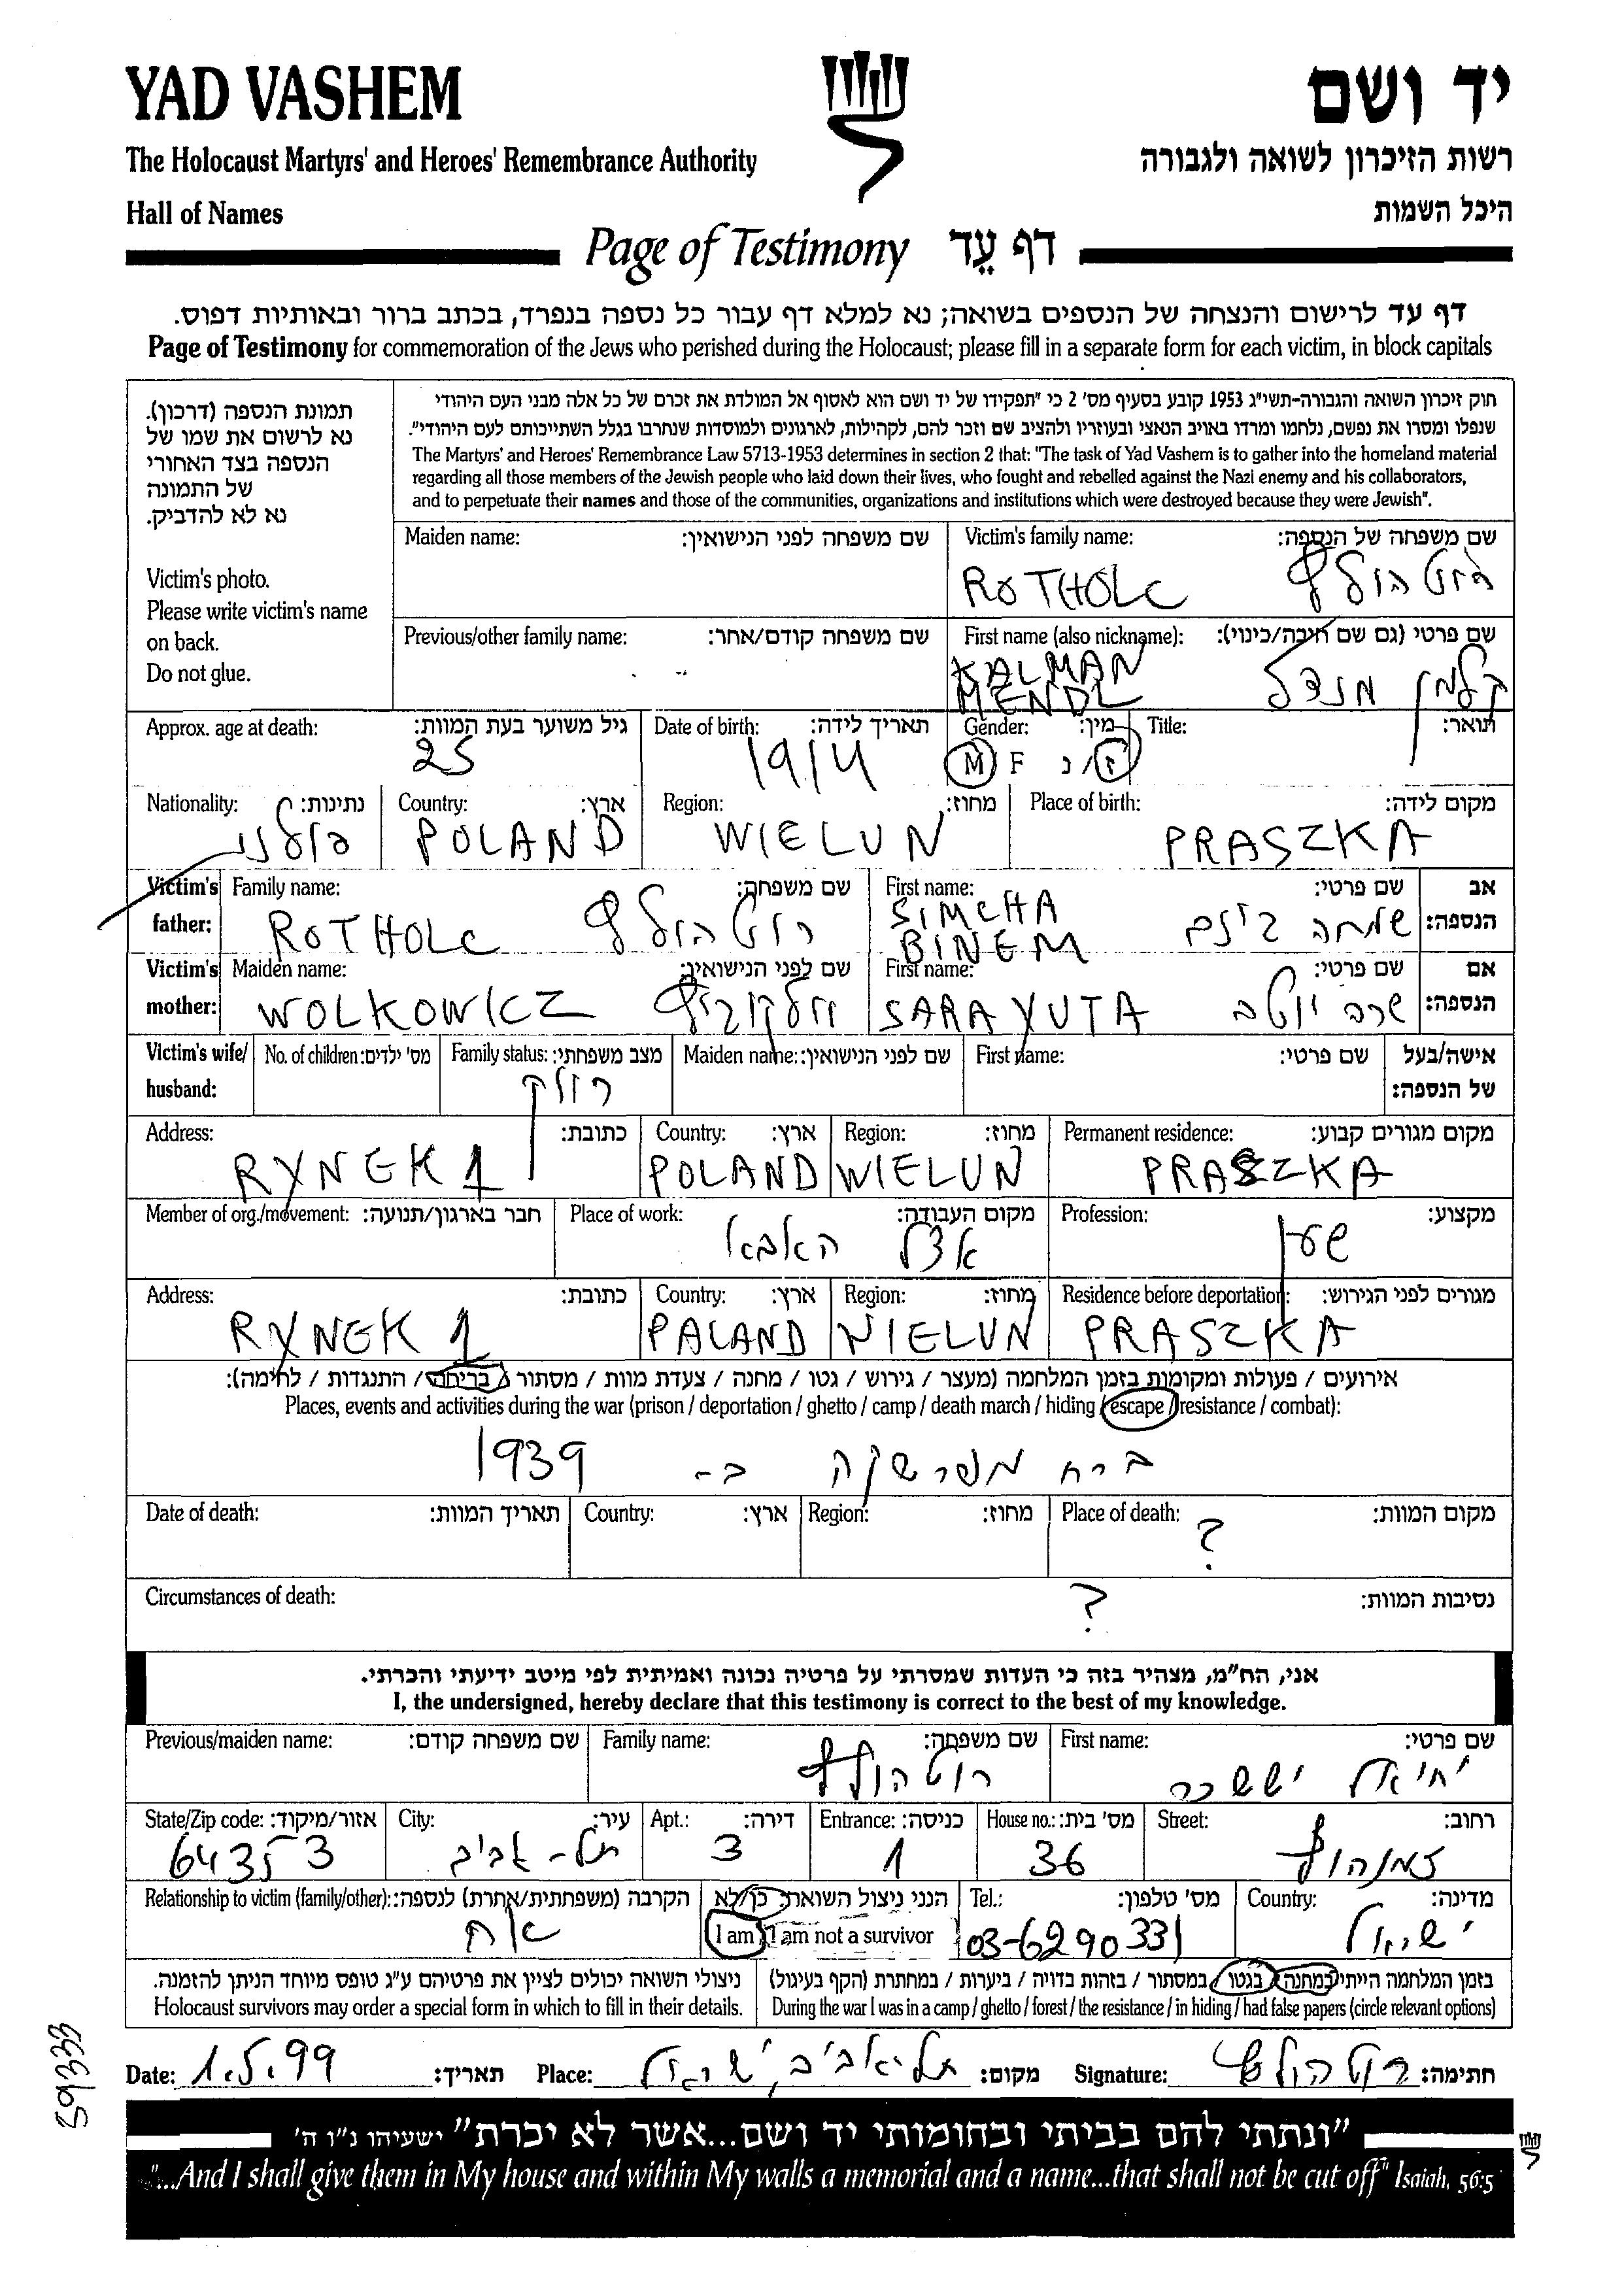 YAD VASHEM יד ושם
The Holocaust Martyrs' and Heroes' Remembrance Authority רשות הזיכרון לשואה ולגבורה
Hall of Names היכל השמות
Page of Testimony דף עֵד
דף עד לרישום והנצחה של הנספים בשואה; נא למלא דף עבור כל נספה בנפרד, בכתב ברור ובאותיות דפוס.
Page of Testimony for commemoration of the Jews who perished during the Holocaust; please fill in a separate form for each victim, in block capitals
תמונת הנספה (דרכון).
נא לרשום את שמו של
הנספה בצד האחורי
של התמונה
נא לא להדביק.
Victim's photo.
Please write victim's name
on back.
Do not glue.
חוק זיכרון השואה והגבורה-תשי"ג 1953 קובע בסעיף מס' 2 כי "תפקידו של יד ושם הוא לאסוף אל המולדת את זכרם של כל אלה מבני העם היהודי
שנפלו ומסרו את נפשם, נלחמו ומרדו באויב הנאצי ובעוזריו ולהציב שם וזכר להם, לקהילות, לארגונים ולמוסדות שנחרבו בגלל השתייכותם לעם היהודי".
The Martyrs' and Heroes' Remembrance Law 5713-1953 determines in section 2 that: "The task of Yad Vashem is to gather into the homeland material
regarding all those members of the Jewish people who laid down their lives, who fought and rebelled against the Nazi enemy and his collaborators,
and to perpetuate their names and those of the communities, organizations and institutions which were destroyed because they were Jewish".
Maiden name: שם משפחה לפני הנישואין: Victim's family name: שם משפחה של הנספה:
ROTHOLC רוטהולץ
Previous/other family name: שם משפחה קודם/אחר: First name (also nickname): שם פרטי (גם שם חיבה/כינוי):
KALMAN
MENDL קלמן מנדל
Approx. age at death: גיל משוער בעת המוות: Date of birth: תאריך לידה: Gender: מין: Title: תואר:
25 1914 M F ז/נ
Nationality: נתינות: Country: ארץ: Region: מחוז: Place of birth: מקום לידה:
פולני POLAND WIELUN PRASZKA
Victim's father: Family name: שם משפחה: First name: שם פרטי: אב הנספה:
ROTHOLC רוטהולץ SIMCHA
BINEM שמחה בינם
Victim's mother: Maiden name: שם לפני הנישואין: First name: שם פרטי: אם הנספה:
WOLKOWICZ וולקוביץ SARA YUTA שרה יוטה
Victim's wife/ husband: No. of children: מס' ילדים: Family status: מצב משפחתי: Maiden name: שם לפני הנישואין: First name: שם פרטי: אישה/בעל של הנספה:
רווק
Address: כתובת: Country: ארץ: Region: מחוז: Permanent residence: מקום מגורים קבוע:
RYNEK 1 POLAND WIELUN PRASZKA
Member of org./movement: חבר בארגון/תנועה: Place of work: מקום העבודה: Profession: מקצוע:
אצל האבא שען
Address: כתובת: Country: ארץ: Region: מחוז: Residence before deportation: מגורים לפני הגירוש:
RYNEK 1 PALAND WIELUN PRASZKA
אירועים / פעולות ומקומות בזמן המלחמה (מעצר / גירוש / גטו / מחנה / צעדת מוות / מסתור / בריחה / התנגדות / לחימה):
Places, events and activities during the war (prison / deportation / ghetto / camp / death march / hiding / escape / resistance / combat):
ברח מפרשקה ב- 1939
Date of death: תאריך המוות: Country: ארץ: Region: מחוז: Place of death: מקום המוות:
?
Circumstances of death: נסיבות המוות:
?
אני, הח"מ, מצהיר בזה כי העדות שמסרתי על פרטיה נכונה ואמיתית לפי מיטב ידיעתי והכרתי.
I, the undersigned, hereby declare that this testimony is correct to the best of my knowledge.
Previous/maiden name: שם משפחה קודם: Family name: שם משפחה: First name: שם פרטי:
רוטהולץ יחיאל יששכר
State/Zip code: אזור/מיקוד: City: עיר: Apt.: דירה: Entrance: כניסה: House no.: מס' בית: Street: רחוב:
64353 תל-אביב 3 1 36 זמנהוף
Relationship to victim (family/other): הקרבה (משפחתית/אחרת) לנספה: הנני ניצול השואה: כן/לא Tel.: מס' טלפון: Country: מדינה:
אח I am / I am not a survivor 03-6290331 ישראל
ניצולי השואה יכולים לציין את פרטיהם ע"ג טופס מיוחד הניתן להזמנה. בזמן המלחמה הייתי במחנה / בגטו / במסתור / בזהות בדויה / ביערות / במחתרת (הקף בעיגול)
Holocaust survivors may order a special form in which to fill in their details. During the war I was in a camp / ghetto / forest / the resistance / in hiding / had false papers (circle relevant options)
Date: 1.5.99 תאריך: Place: תל אביב, ישראל מקום: Signature: רוטהולץ חתימה:
59333
"ונתתי להם בביתי ובחומותי יד ושם...אשר לא יכרת" ישעיהו נ"ו ה'
"...And I shall give them in My house and within My walls a memorial and a name...that shall not be cut off" Isaiah, 56:5